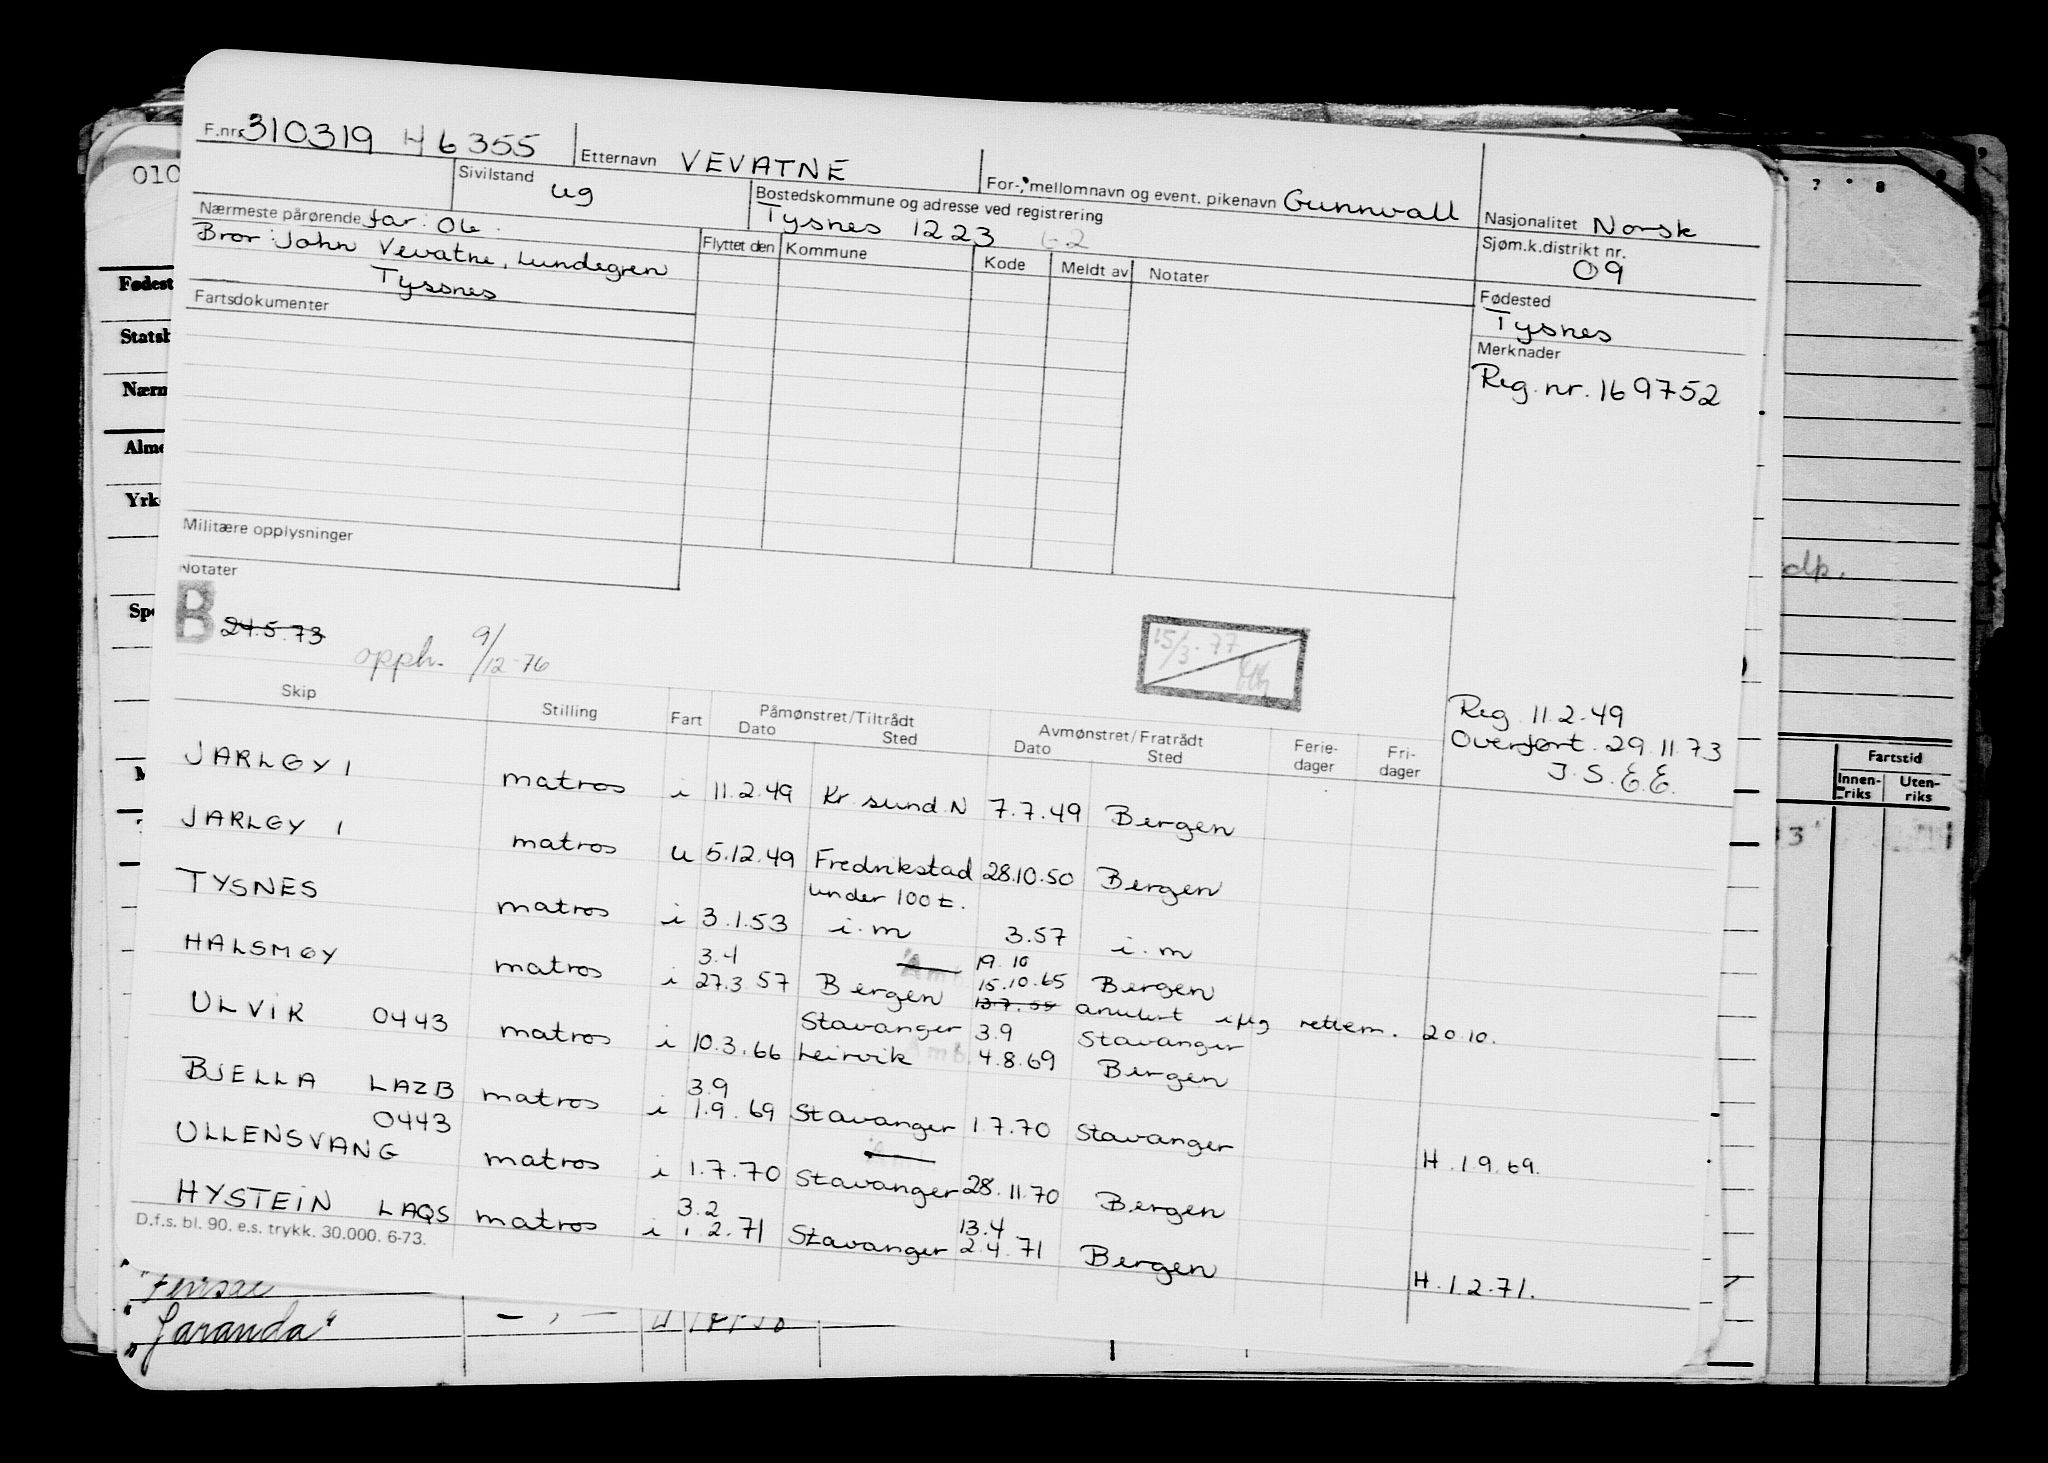 F.nr. 310319 46355
Etternavn VEVATNE
For-, mellomnavn og event. pikenavn Gunnvall
Nasjonalitet Norsk
Sivilstand ug
Bostedskommune og adresse ved registrering
Tysnes 1223 62
Sjøm.k.distrikt nr.
09
Nærmeste pårørende far: Ole
Bror: John Vevatne, Lundegren
Tyssnes
Flyttet den Kommune Kode Meldt av Notater
Fødested
Tysnes
Fartsdokumenter
Merknader
Reg. nr. 169752
Militære opplysninger
Notater
B 24.5.73
opph. 9/12-76
15/3.77
Reg. 11.2.49
Overført. 29.11.73
J.S.E.E.
Skip Stilling Fart Påmønstret/Tiltrådt Dato Sted Avmønstret/Fratrådt Dato Sted Ferie-dager Fri-dager
JARLØY 1 matros i 11.2.49 Kr. sund N 7.7.49 Bergen
JARLØY 1 matros u 5.12.49 Fredrikstad 28.10.50 Bergen
under 100 t.
TYSNES matros i 3.1.53 i.m 3.57 i.m
3.4 19.10
HALSNØY matros i 27.3.57 Bergen 15.10.65 Bergen
13.7.55 anulert iflg rettem. 20.10.
Stavanger 3.9 Stavanger
ULVIK 0443 matros i 10.3.66 Leirvik 4.8.69 Bergen
3.9
BJELLA LAZB matros i 1.9.69 Stavanger 1.7.70 Stavanger H.1.9.69.
0443
ULLENSVANG matros i 1.7.70 Stavanger 28.11.70 Bergen
3.2 13.4
HYSTEIN LAQS matros i 1.2.71 Stavanger 2.4.71 Bergen H.1.2.71.
D.f.s. bl. 90. e.s. trykk. 30.000. 6-73.
010
Fødest
Statsb
Nærm
Alme
Yrk
Spe
7 8
dp.
Fartstid
Innen-riks Uten-riks
"Garanda"